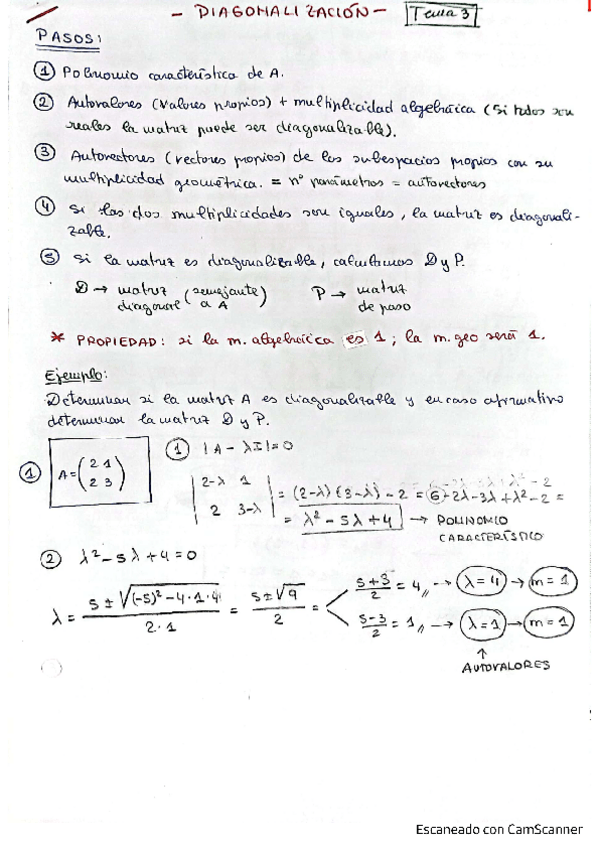 - DIAGONALIZACIÓN - Tema 3
PASOS:
① Polinomio característico de A.
② Autovalores (valores propios) + multiplicidad algebráica (Si todos son
reales la matriz puede ser diagonalizable).
③ Autovectores (vectores propios) de los subespacios propios con su
multiplicidad geométrica. = nº parámetros = autovectores
④ Si las dos multiplicidades son iguales, la matriz es diagonali-
zable.
⑤ Si la matriz es diagonalizable, calculamos D y P.
D → matriz diagonal (semejante a A) P → matriz de paso
* PROPIEDAD: si la m. algebráica es 1; la m. geo será 1.
Ejemplo:
Determinar si la matriz A es diagonalizable y en caso afirmativo
determinar la matriz D y P.
① A = (2 1 / 2 3) ① |A - λI| = 0
|2-λ 1 / 2 3-λ| = (2-λ)(3-λ) - 2 = 6 - 2λ - 3λ + λ² - 2 =
= λ² - 5λ + 4 → POLINOMIO
CARACTERÍSTICO
② λ² - 5λ + 4 = 0
λ = 5 ± √((-5)² - 4·1·4) / 2·1 = 5 ± √9 / 2 =
5+3 / 2 = 4,, → λ = 4 → m = 1
5-3 / 2 = 1,, → λ = 1 → m = 1
↑
AUTOVALORES
Escaneado con CamScanner